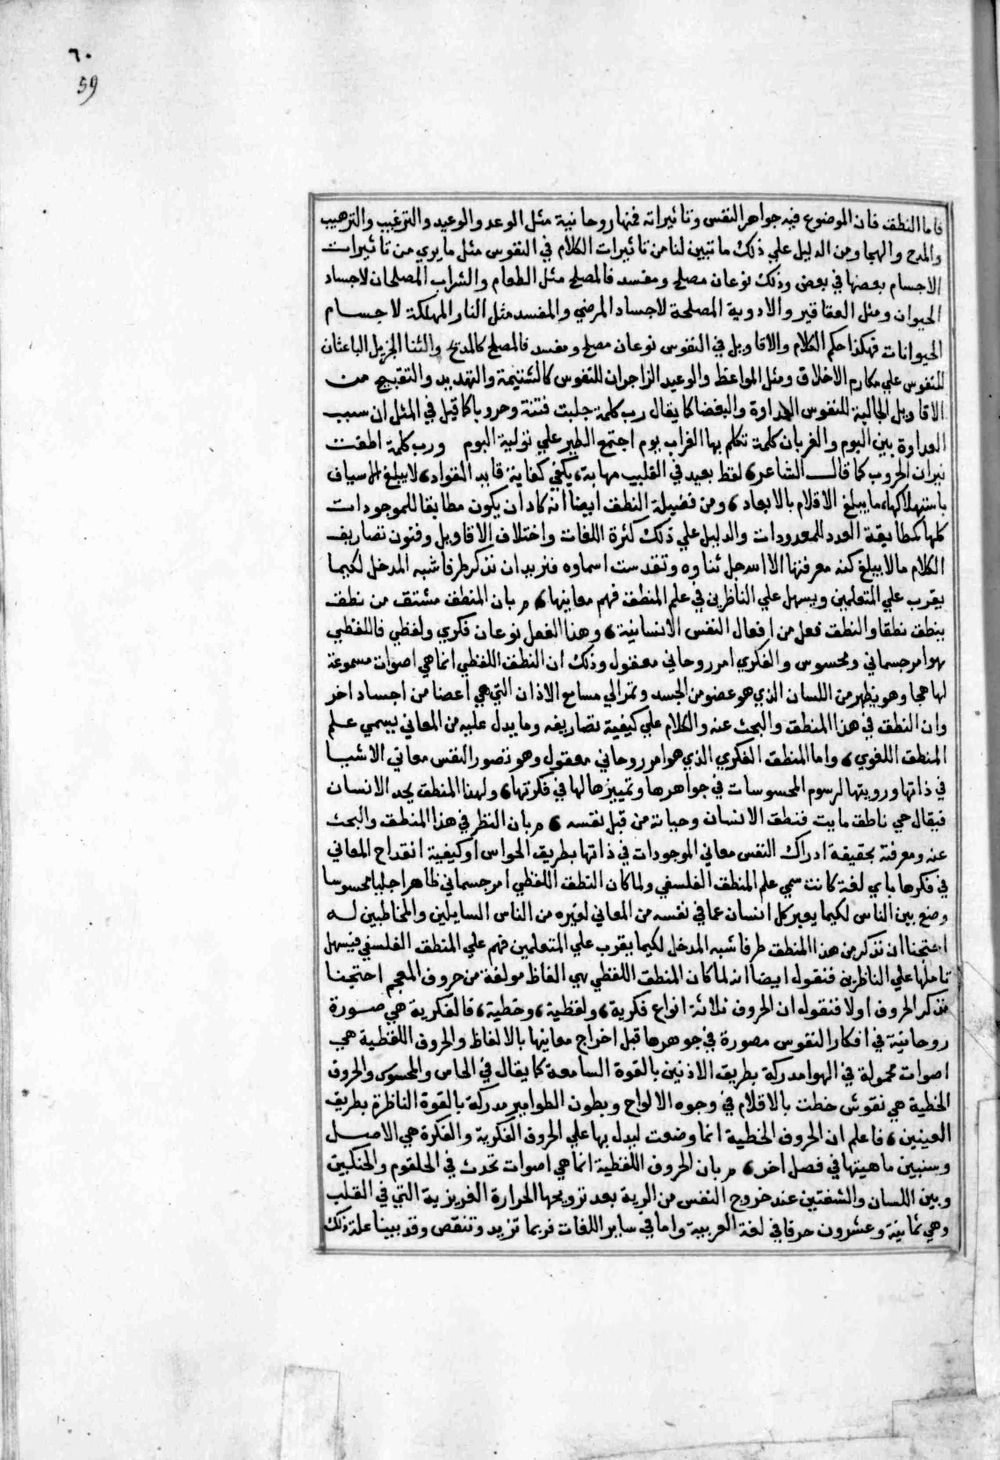 ٦٠
59
فاما النطق فان الموضوع فيه جواهر النفس وتاثيراته فمنها روحانية مثل الوعد والوعيد والترغيب والترهيب
والمدح والهجا ومن الدليل علي ذلك ما تبين لنا من تاثيرات الكلام في النفوس مثل ما يري من تاثيرات
الاجسام بعضها في بعض وذلك نوعان مصلح ومفسد فالمصلح مثل الطعام والشراب المصلحان لاجساد
الحيوان ومثل العقاقير والادوية المصلحة لاجساد المرضي والمفسد مثل النار المهلكة لاجسام
الحيوانات فهكذا حكم الكلام والاقاويل في النفوس نوعان مصلح ومفسد فالمصلح كالمدح والثنا الجزيل الباعثان
للنفوس علي مكارم الاخلاق ومثل المواعظ والوعيد الزاجران للنفوس كالشتيمة والتهديد والتقبيح من
الاقاويل الجالبة للنفوس العداوة والبغضا كما يقال رب كلمة جلبت فتنة وحروبا كما قيل في المثل ان سبب
العداوة بين البوم والغربان كلمة تكلم بها الغراب يوم اجتمع الطير علي تولية البوم ورب كلمة اطفت
نيران الحروب كما قال الشاعر، لفظ بعيد في القليب مهابة، يكفي كفاية قايد القواد، لا يبلغ الاسياف
باستهلاكها، ما يبلغ الاقلام بالابعاد، ومن فضيلة النطق ايضا انه كاد ان يكون مطابقا للموجودات
كلها كمطابقة العدد للمعدودات والدليل علي ذلك كثرة اللغات واختلاف الاقاويل وفنون تصاريف
الكلام مالا يبلغ كنه معرفتها الا الله جل ثناوه وتقدست اسماوه فنريد ان نذكر طرفا شبه المدخل لكيما
يقرب علي المتعلمين ويسهل علي الناظرين في علم المنطق فهم معاينها، م بان المنطق مشتق من نطق
ينطق نطقا والنطق فعل من افعال النفس الانسانية، وهذا الفعل نوعان فكري ولفظي فاللفظي
هو امر جسماني ومحسوس والفكري امر روحاني معقول وذلك ان النطق اللفظي انما هي اصوات مسموعة
لها هجا وهو يظهر من اللسان الذي هو عضو من الجسد وتمر الي مسامع الاذان التي هي اعضا من اجساد اخر
وان النطق في هذا المنطق والبحث عنه والكلام علي كيفية تصاريفه وما يدل عليه من المعاني يسمي علم
المنطق اللغوي، واما المنطق الفكري الذي هو امر روحاني معقول وهو تصور النفس معاني الاشيا
في ذاتها ورويتها لرسوم المحسوسات في جواهرها وتمييزها لها في فكرتها، ولهذا المنطق يحد الانسان
فيقال حي ناطق مايت فنطق الانسان وحياته من قبل نفسه، م بان النظر في هذا المنطق والبحث
عنه ومعرفة بحقيقة ادراك النفس معاني الموجودات في ذاتها بطريق الحواس او كيفية انقداح المعاني
في فكرها باي لغة كانت سمي علم المنطق الفلسفي ولما كان النطق اللفظي امر جسماني ظاهرا جليا محسوسا
وضع بين الناس لكيما يعبر كل انسان عما في نفسه من المعاني لغيره من الناس السايلين والمخاطبين له
احتجنا ان نذكر من هذا المنطق طرفا شبه المدخل لكيما يقرب علي المتعلمين فهم علي المنطق الفلسفي فيسهل
تاملها علي الناظرين فنقول ايضا انه لما كان المنطق اللفظي هي الفاظ مولفة من حروف المعجم احتجنا
نذكر الحروف اولا فنقول ان الحروف ثلاثة انواع فكرية، ولفظية، وخطية، فالفكرية هي صورة
روحانية في افكار النفوس مصورة في جوهرها قبل اخراج معاينها بالالفاظ والحروف اللفظية هي
اصوات محمولة في الهوا مدركة بطريق الاذنين بالقوة السامعة كما يقال في الحاس والمحسوس والحروف
الخطية هي نقوش خطت بالاقلام في وجوه الالواح وبطون الطوامير مدركة بالقوة الناظرة بطريق
العينين، فاعلم ان الحروف الخطية انما وضعت ليدل بها علي الحروف الفكرية والفكرة هي الاصل
وسنبين ماهيتها في فصل اخر، م بان الحروف اللفظية انما هي اصوات تحدث في الحلقوم والحنكين
وبين اللسان والشفتين عند خروج النفس من الرية بعد ترويحها الحرارة الغريزية التي في القلب
وهي ثمانية وعشرون حرفا في لغة العربية واما في ساير اللغات فربما تزيد وتنقص وقد بينا علة ذلك